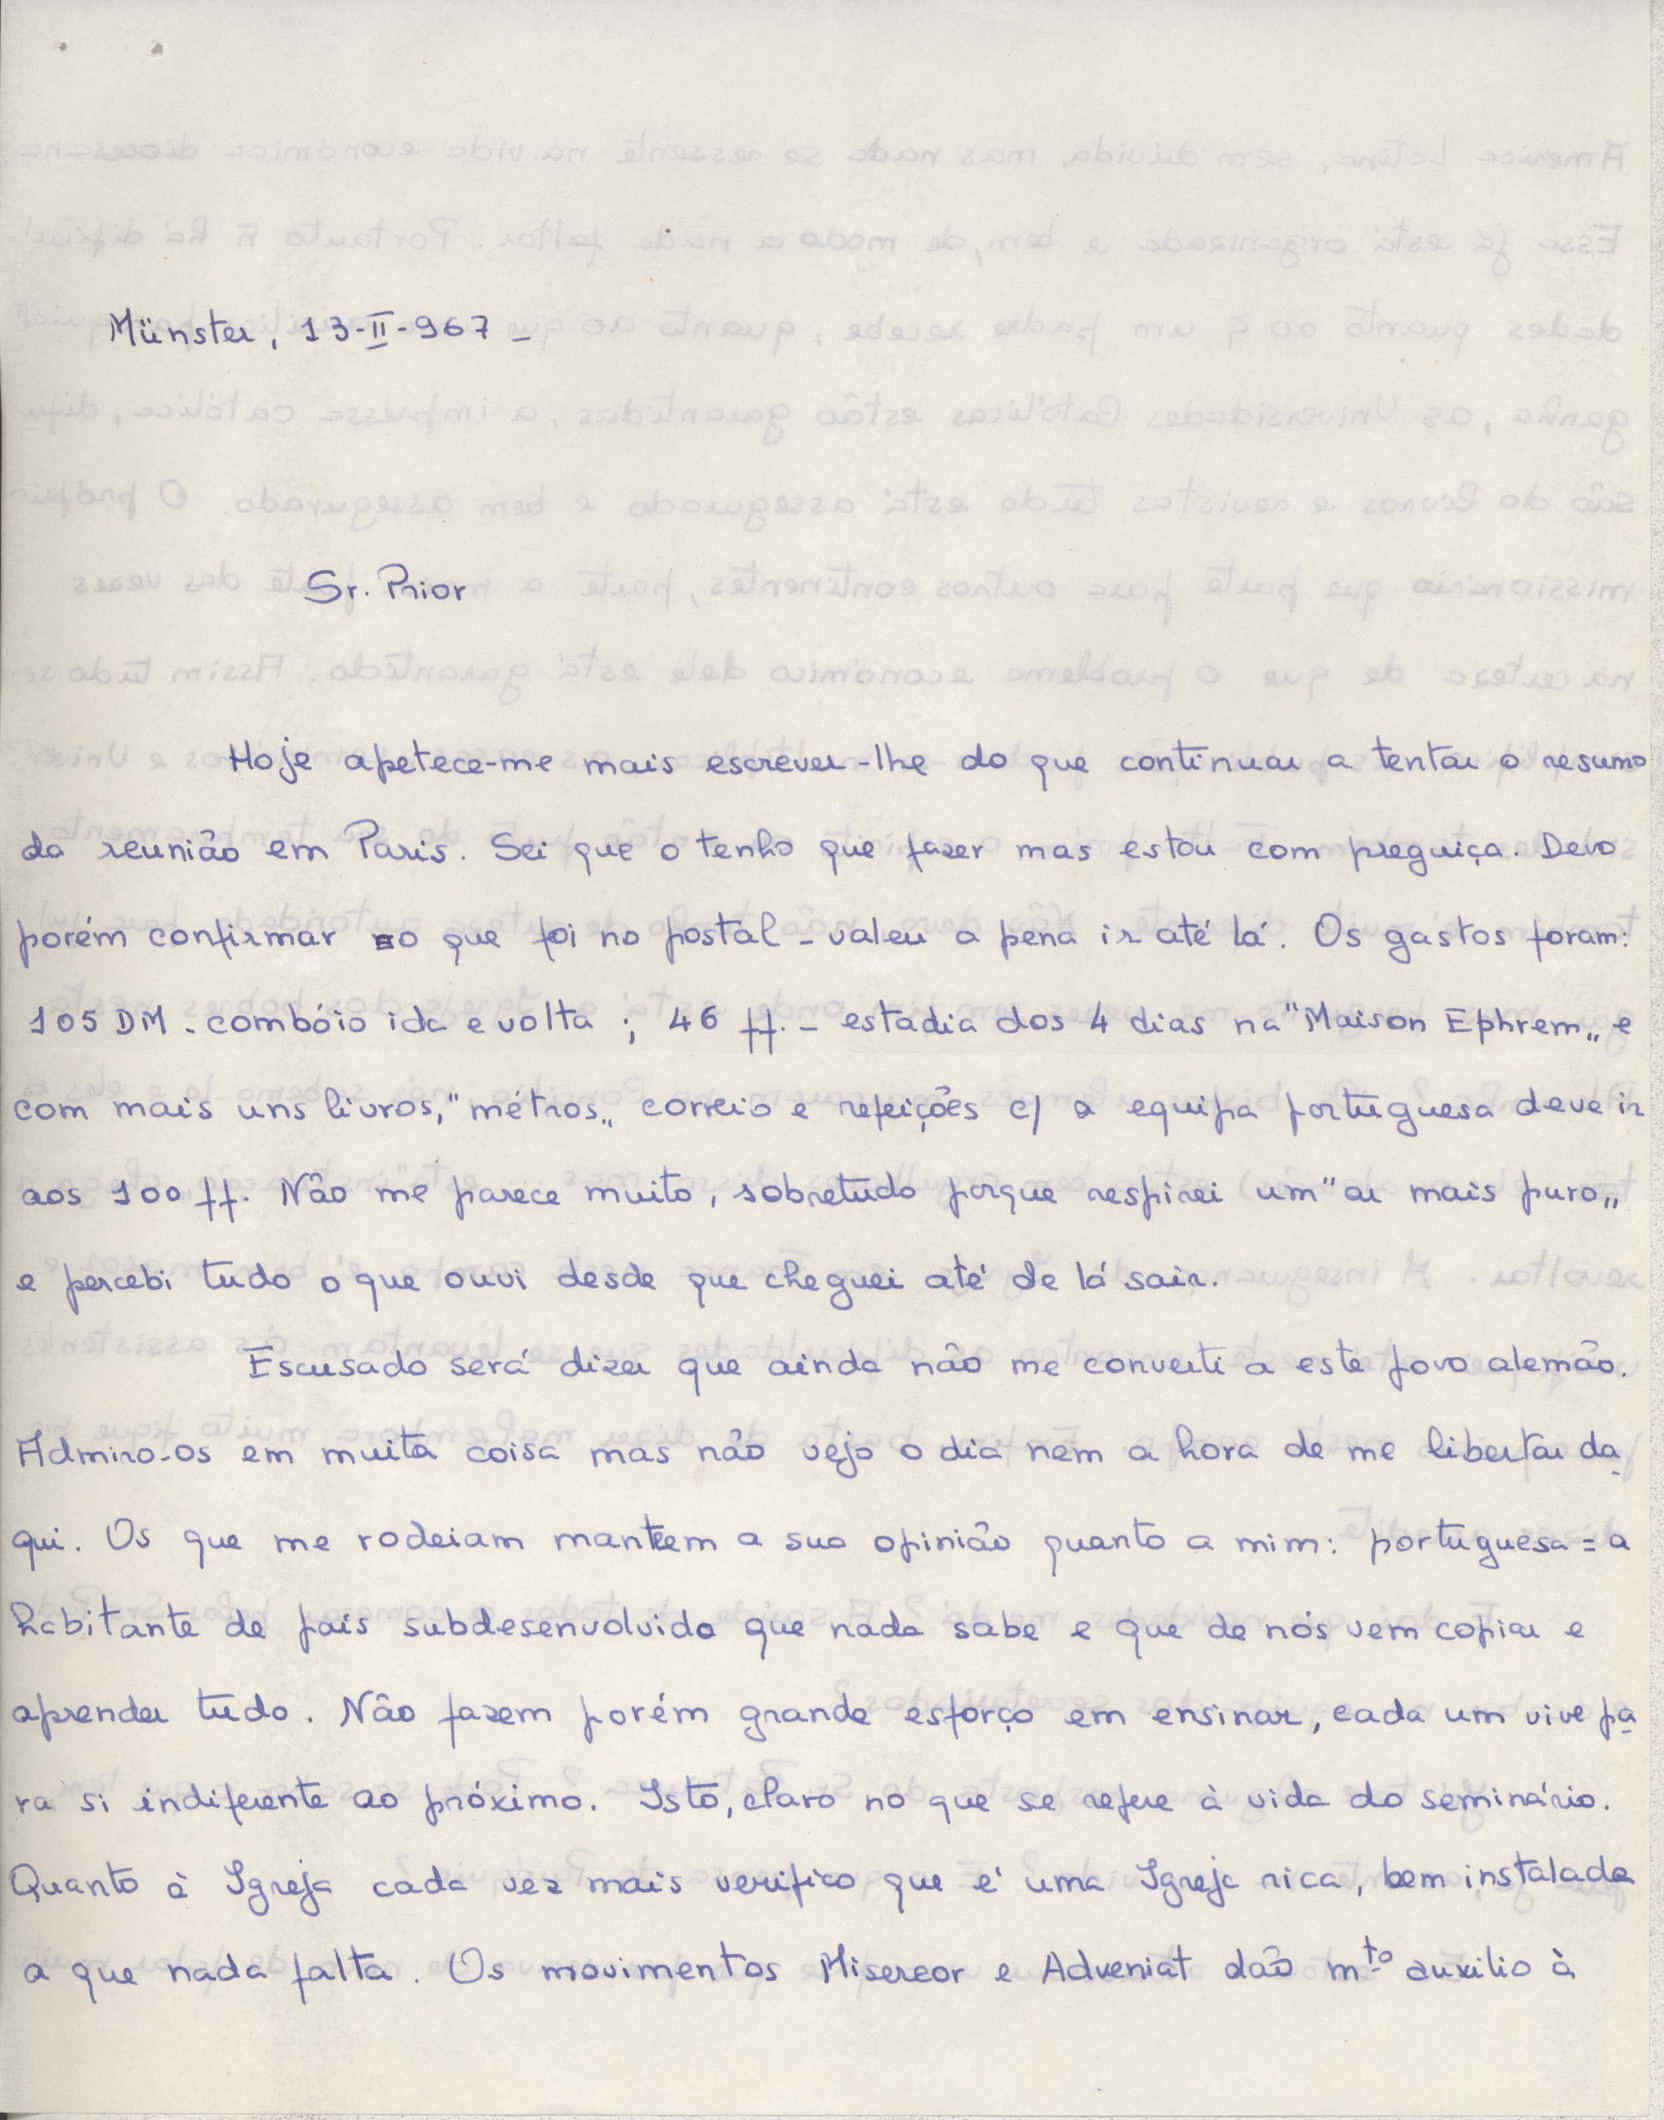 Münster, 13-II-967 -
Sr. Prior
Hoje apetece-me mais escrever-lhe do que continuar a tentar o resumo
da reunião em Paris. Sei que o tenho que fazer mas estou com preguiça. Devo
porém confirmar o que foi no postal - valeu a pena ir até lá. Os gastos foram:
105 DM - combóio ida e volta ; 46 ff. - estadia dos 4 dias na "Maison Ephrem„ e
com mais uns livros, "métros„ correio e refeições c/ a equipa portuguesa deve ir
aos 100 ff. Não me parece muito, sobretudo porque respirei um "ar mais puro„
e percebi tudo o que ouvi desde que cheguei até de lá sair.
Escusado será dizer que ainda não me converti a este povo alemão.
Admiro-os em muita coisa mas não vejo o dia nem a hora de me libertar da
qui. Os que me rodeiam mantem a sua opinião quanto a mim: portuguesa = a
habitante de país subdesenvolvido que nada sabe e que de nós vem copiar e
aprender tudo. Não fazem porém grande esforço em ensinar, cada um vive pa
ra si indiferente ao próximo. Isto, claro no que se refere à vida do seminário.
Quanto à Igreja cada vez mais verifico que é uma Igreja rica, bem instalada
a que nada falta. Os movimentos Misereor e Adveniat dão mto auxilio à